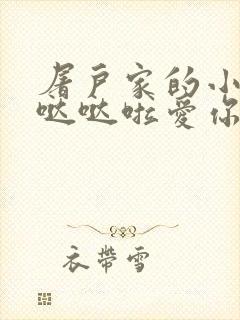 屠户家的小
哒哒啦爱你
衣带雪